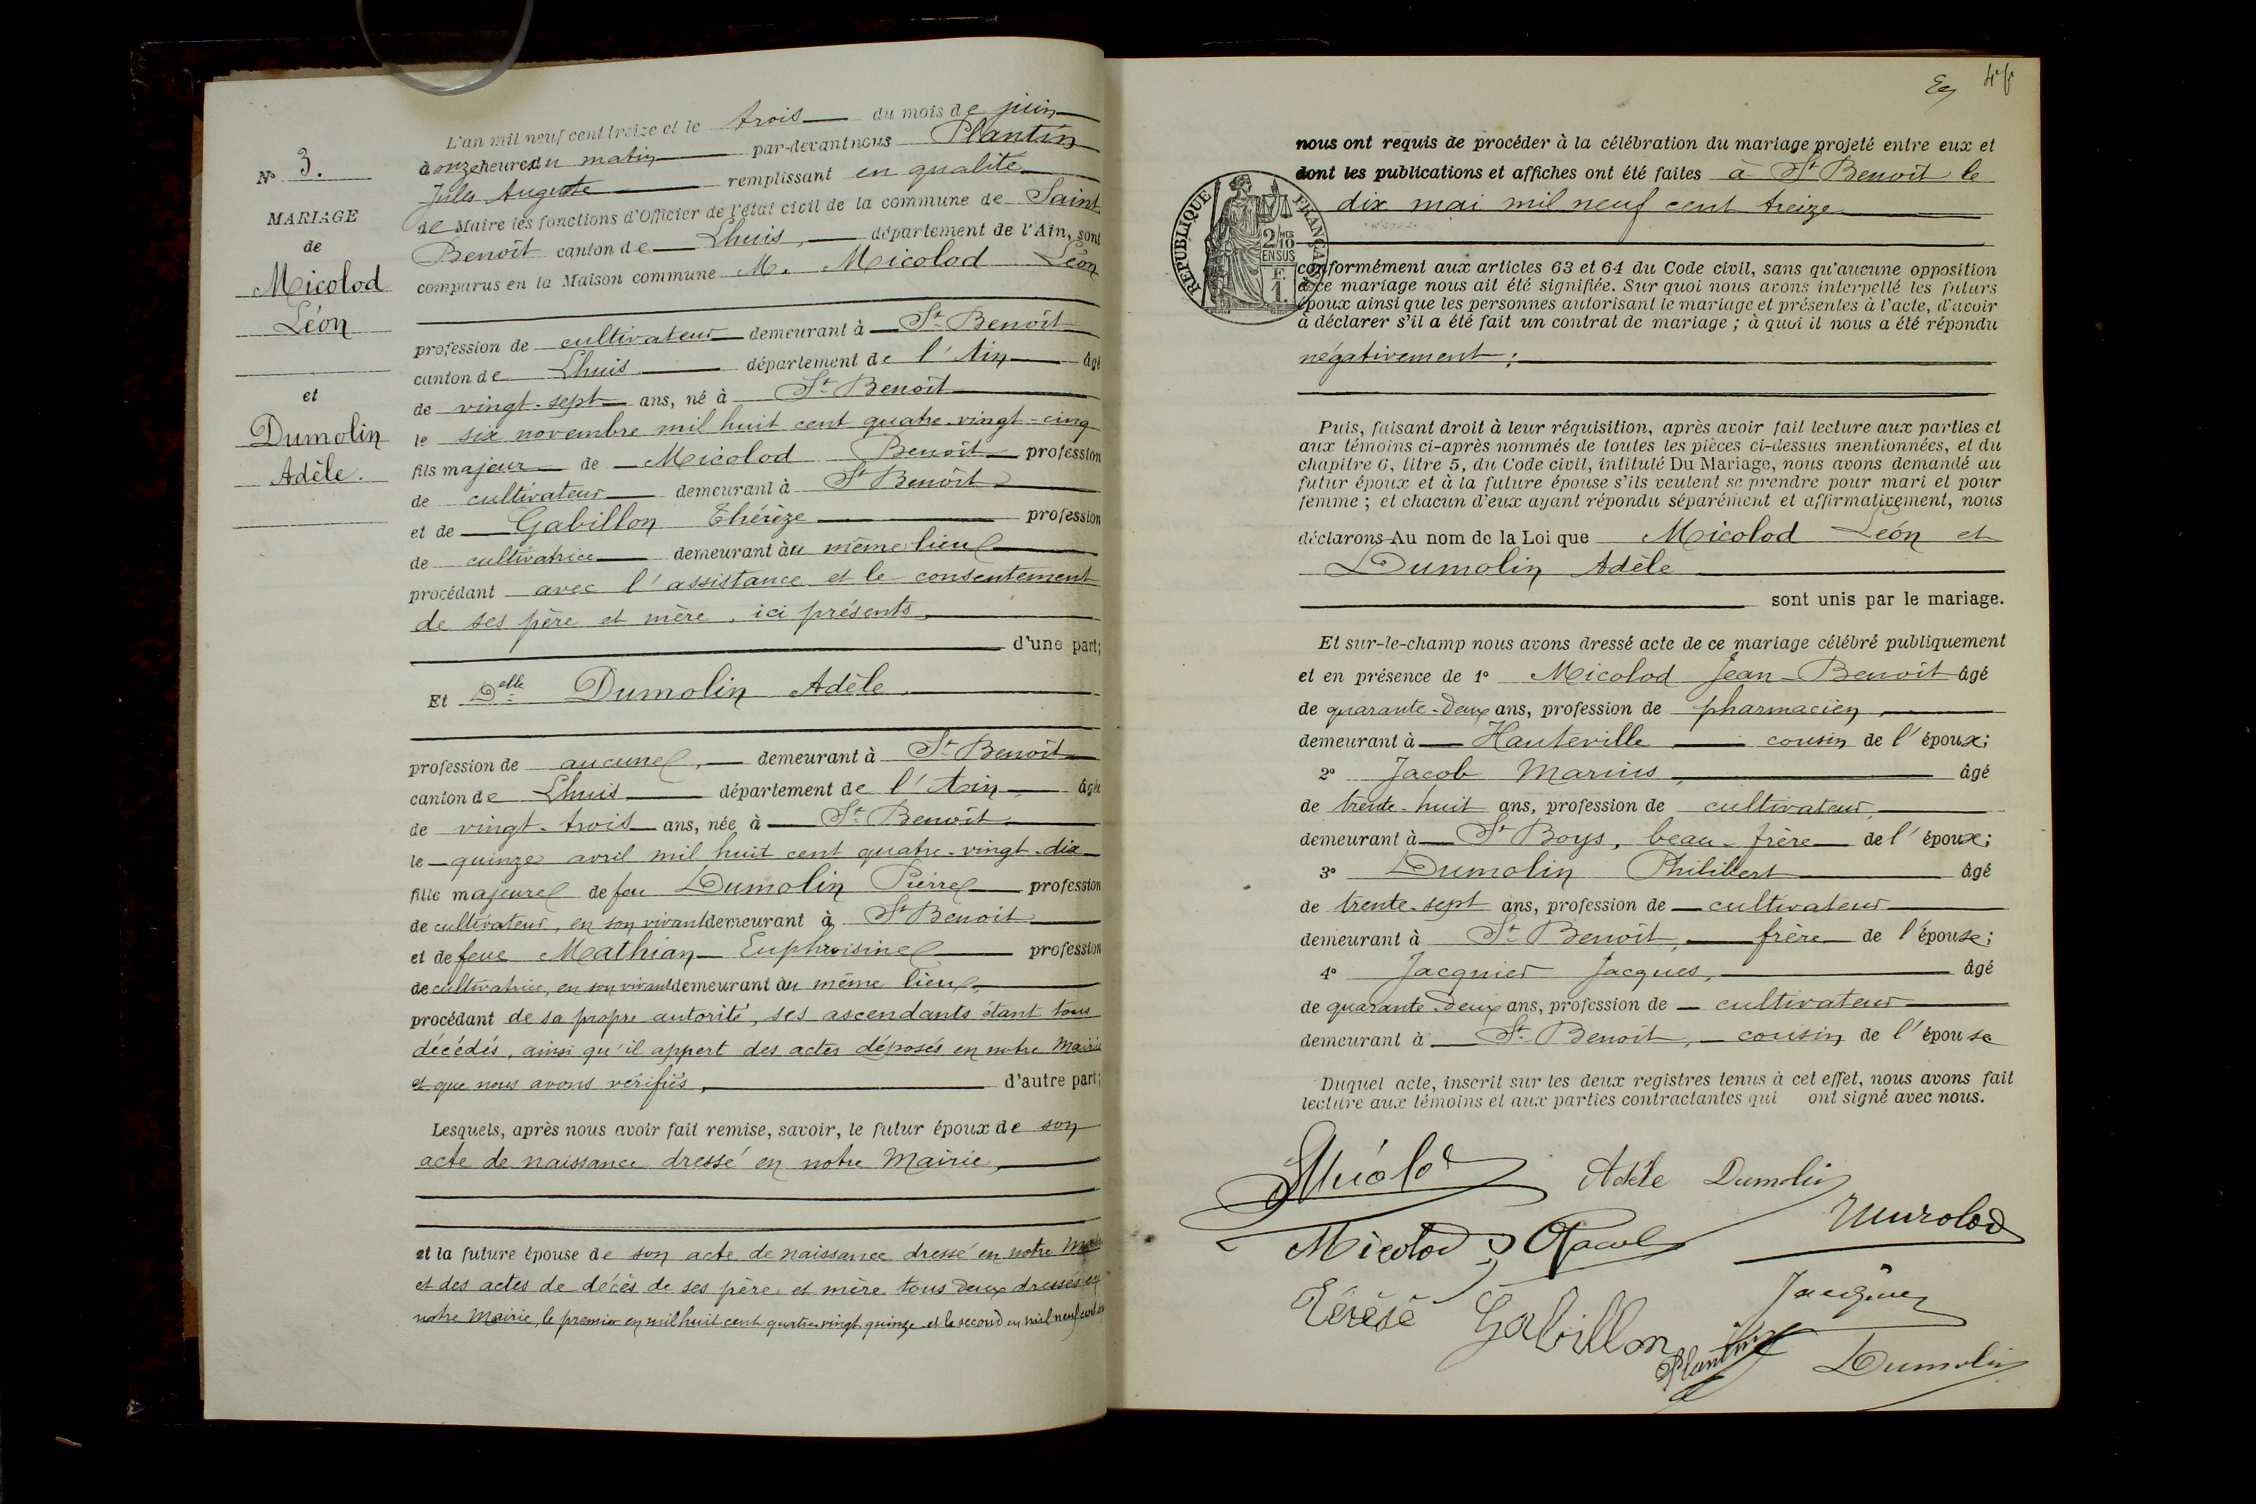 N° 3.
MARIAGE
de
Micolod
Léon
et
Dumolin
Adèle.
L'an mil neuf cent treize et le trois du mois de juin
à onze heures du matin par-devant nous Plantin
Jules Auguste remplissant en qualité
de Maire les fonctions d'Officier de l'état civil de la commune de Saint
Benoît canton de Lhuis, département de l'Ain, sont
comparus en la Maison commune M. Micolod Léon
profession de cultivateur demeurant à St Benoît
canton de Lhuis département de l'Ain âgé
de vingt-sept ans, né à St Benoît
le six novembre mil huit cent quatre-vingt-cinq
fils majeur de Micolod Benoît profession
de cultivateur demeurant à St Benoît
et de Gabillon Thérèze profession
de cultivatrice demeurant au même lieu
procédant avec l'assistance et le consentement
de ses père et mère, ici présents,
d'une part;
Et Delle Dumolin Adèle,
profession de aucune, demeurant à St Benoît
canton de Lhuis département de l'Ain, âgée
de vingt-trois ans, née à St Benoît,
le quinze avril mil huit cent quatre-vingt-dix
fille majeure de feu Dumolin Pierre profession
de cultivateur, en son vivant demeurant à St Benoit
et de feue Mathian Euphroisine profession
de cultivatrice, en son vivant demeurant au même lieu,
procédant de sa propre autorité, ses ascendants étant tous
décédés, ainsi qu'il appert des actes déposés en notre Mairie
et que nous avons vérifiés, d'autre part;
Lesquels, après nous avoir fait remise, savoir, le futur époux de son
acte de naissance dressé en notre Mairie,
et la future épouse de son acte de naissance dressé en notre Mairie
et des actes de décès de ses père et mère tous deux dressés en
notre Mairie, le premier en mil huit cent quatre-vingt quinze et le second en mil neuf cent
nous ont requis de procéder à la célébration du mariage projeté entre eux et
dont les publications et affiches ont été faites à St Benoît le
dix mai mil neuf cent treize
REPUBLIQUE FRANÇAISE
2/10 MES
EN SUS
F.
1.
conformément aux articles 63 et 64 du Code civil, sans qu'aucune opposition
à ce mariage nous ait été signifiée. Sur quoi nous avons interpellé les futurs
époux ainsi que les personnes autorisant le mariage et présentes à l'acte, d'avoir
à déclarer s'il a été fait un contrat de mariage; à quoi il nous a été répondu
négativement;
Puis, faisant droit à leur réquisition, après avoir fait lecture aux parties et
aux témoins ci-après nommés de toutes les pièces ci-dessus mentionnées, et du
chapitre 6, titre 5, du Code civil, intitulé Du Mariage, nous avons demandé au
futur époux et à la future épouse s'ils veulent se prendre pour mari et pour
femme; et chacun d'eux ayant répondu séparément et affirmativement, nous
déclarons Au nom de la Loi que Micolod Léon et
Dumolin Adèle
sont unis par le mariage.
Et sur-le-champ nous avons dressé acte de ce mariage célébré publiquement
et en présence de 1° Micolod Jean-Benoît âgé
de quarante-deux ans, profession de pharmacien,
demeurant à Hauteville cousin de l'époux;
2° Jacob Marius âgé
de trente-huit ans, profession de cultivateur,
demeurant à St Boys, beau-frère de l'époux;
3° Dumolin Philibert âgé
de trente-sept ans, profession de cultivateur
demeurant à St Benoît, frère de l'épouse;
4° Jacquier Jacques, âgé
de quarante-deux ans, profession de cultivateur
demeurant à St Benoit, cousin de l'épouse
Duquel acte, inscrit sur les deux registres tenus à cet effet, nous avons fait
lecture aux témoins et aux parties contractantes qui ont signé avec nous.
Micolod Adèle Dumolin
Micolod Jacob Micolod
Térèse Gabillon Jacquier
Plantin Dumolin